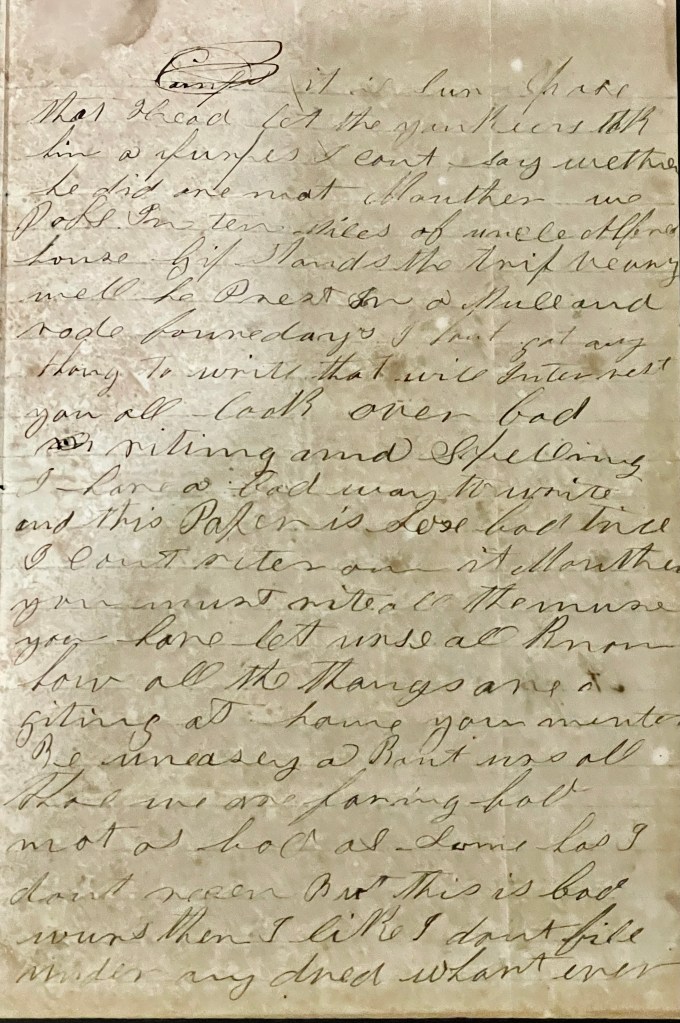 Camps it is sun
that I head let the yankeers tak
him a I cant say wether
he did are not Mauther we
Pass In ten miles of uncle Alfred
house Gif Stands the trip veary
well he Prest In a Mull and
rode foure days I dont got any
thang to write that will Interrest
you all look over bad
riting and Spelling
I have a bad way to write
and this Paper is Sose bad
I cant riter on it Mauther
you must rite all the nuse
you have let urse all Know
how all the thangs are a
giting at home you
Be uneasey a Bout urs all
tho we are faring bad
not as bad as Some has I
dount recen But this is bad
wurs then I like I dont file
under any dred whant ever